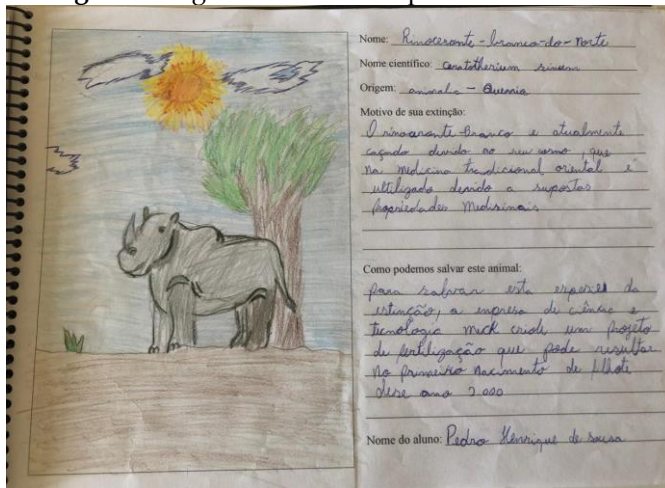 Nome: Rinoceronte-branco-do-norte
Nome científico: ceratotherium simum
Origem: animalia - Quennia
Motivo de sua extinção:
O rinoceronte-branco e atualmente
caçado devido ao seu corno, que
na medicina tradicional oriental é
ultilizado devido a supostas
propriedades medisinais
Como podemos salvar este animal:
para salvar esta especies da
estinção, a empresa de ciência e
tecnologia mick criou um projeto
de fertilização que pode resultar
no primeiro nacimento de filhote
dese ano 2.000
Nome do aluno: Pedro Henrique de sousa